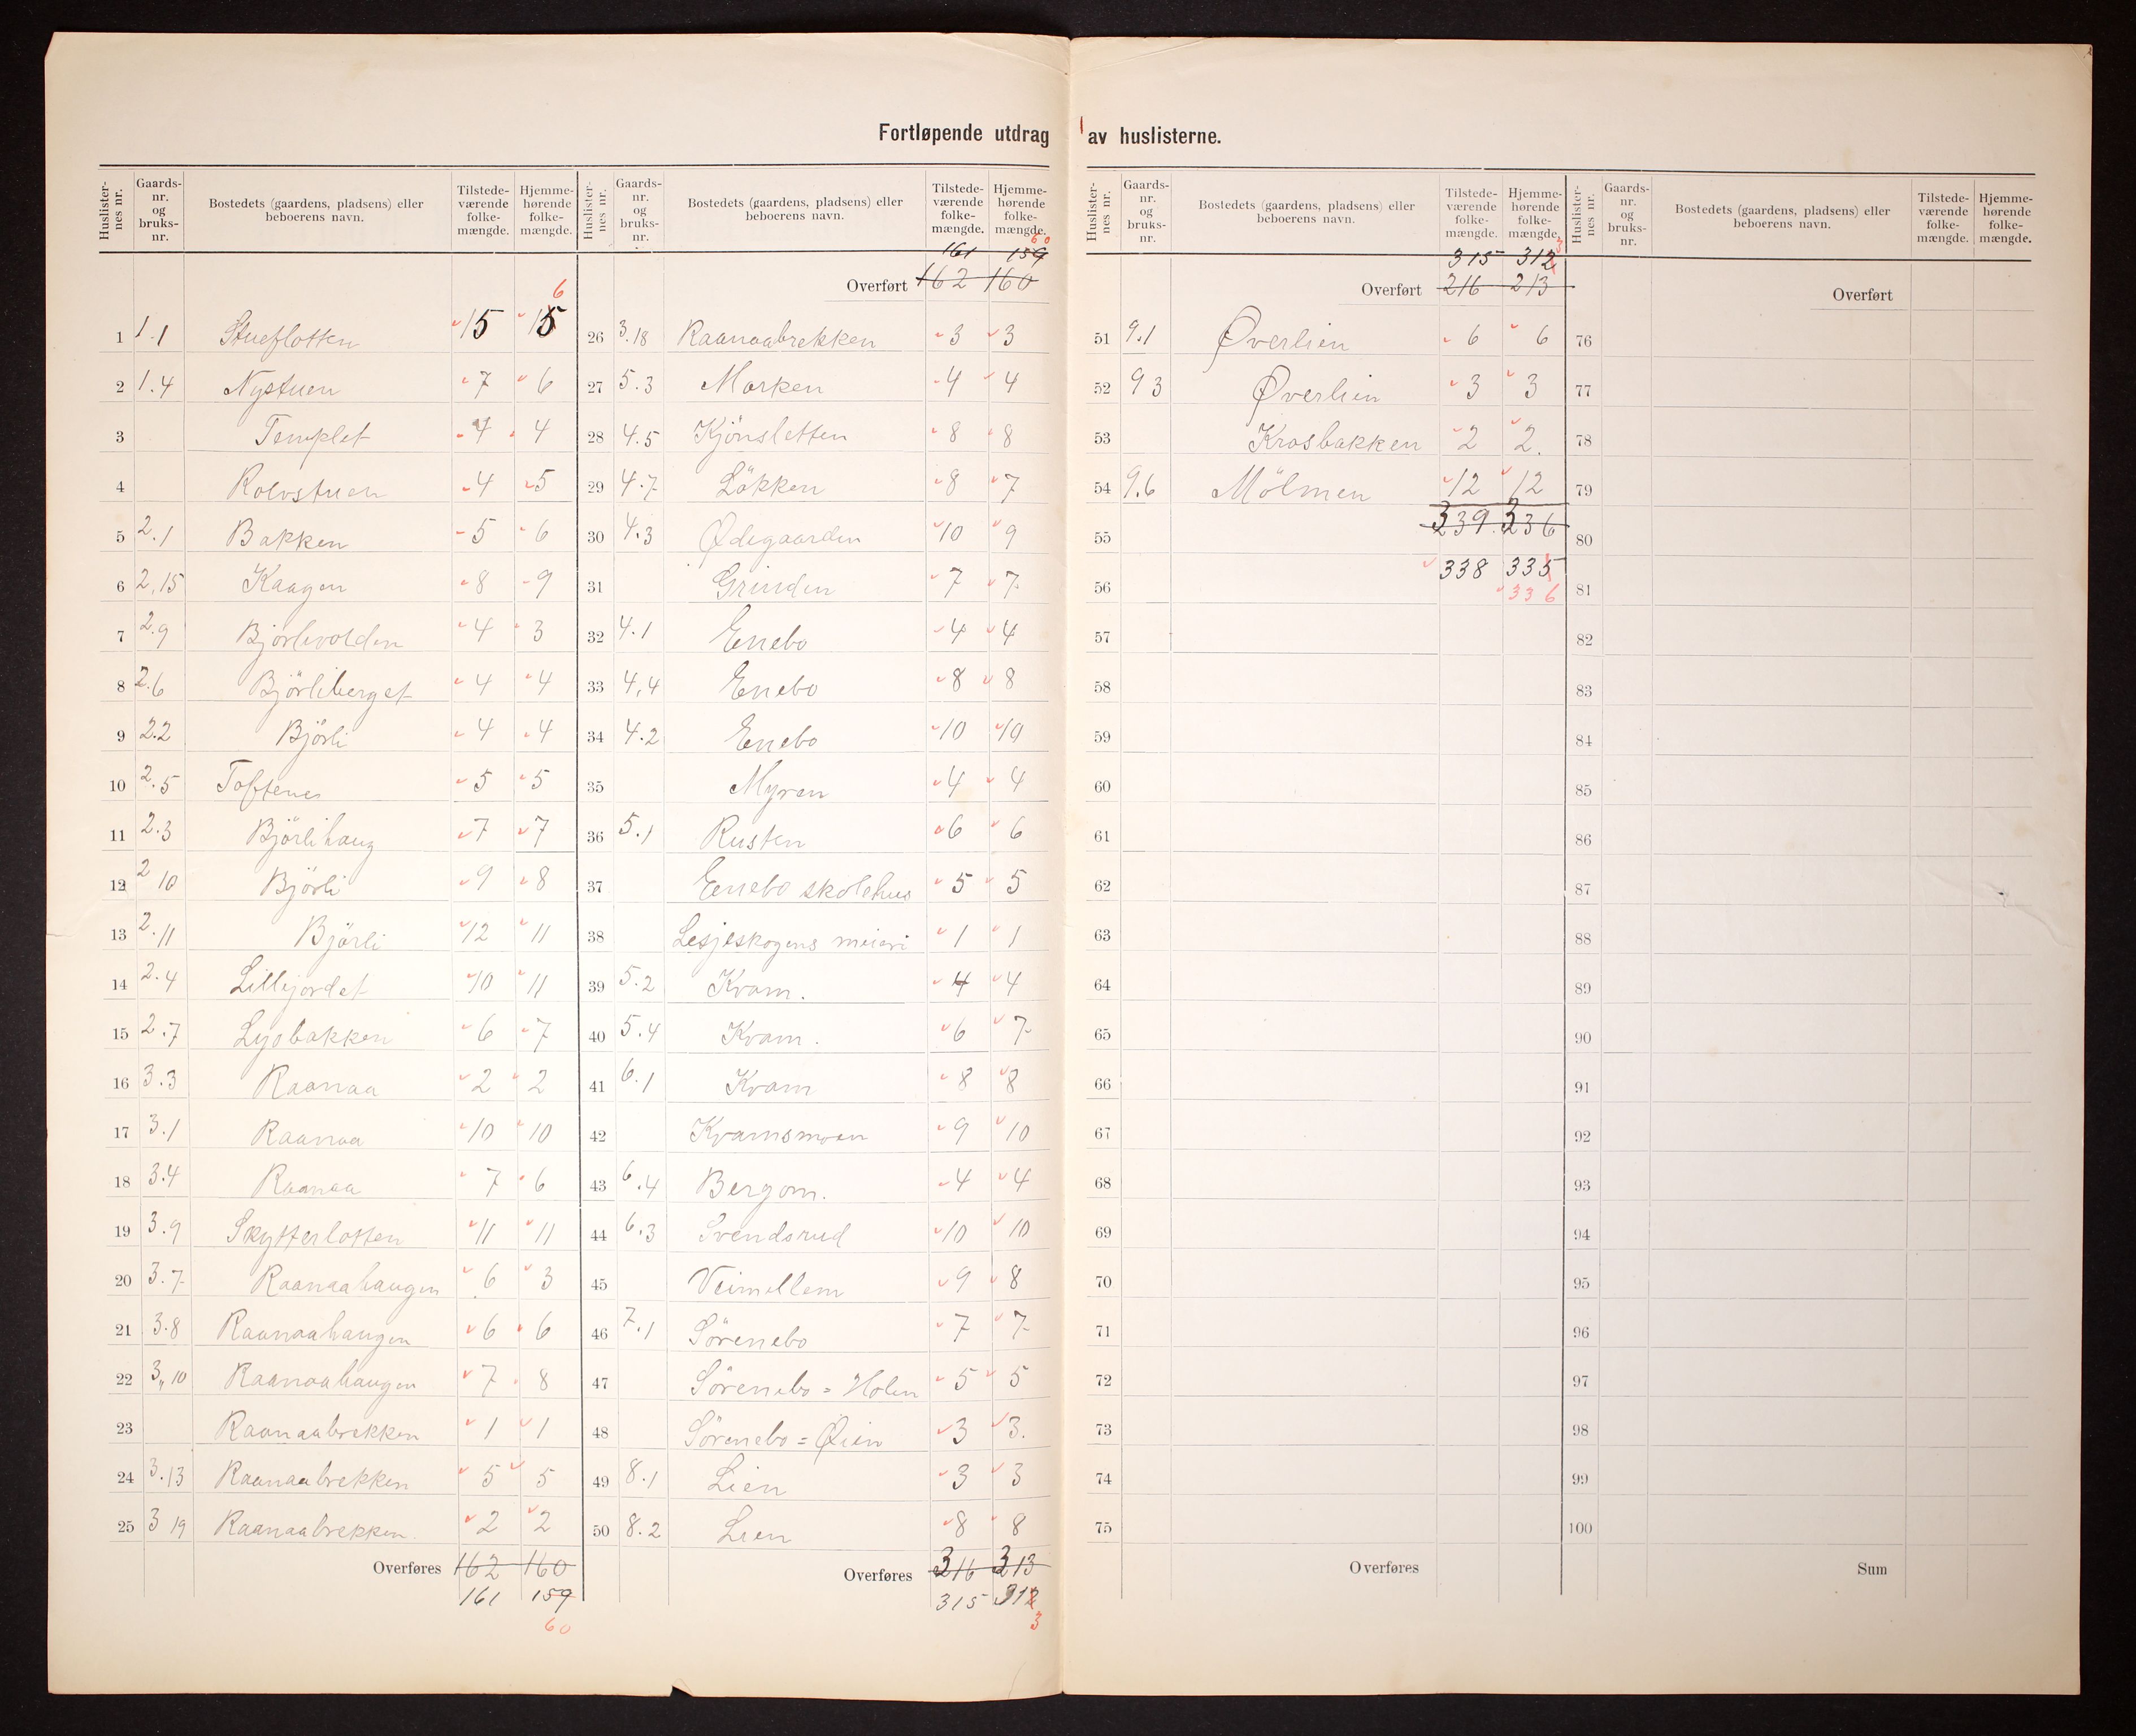 Fortløpende utdrag av huslisterne.
Huslister-nes nr. Gaards-nr. og bruks-nr. Bostedets (gaardens, pladsens) eller beboerens navn. Tilstede-værende folke-mængde. Hjemme-hørende folke-mængde.
6
1 1.1 Stueflotten 15 15
2 1.4 Nystuen 7 6
3 Templet 4 4
4 Rolvstuen 4 5
5 2.1 Bakken 5 6
6 2.15 Kaagen 8 9
7 2.9 Bjørlivolden 4 3
8 2.6 Björliberget 4 4
9 2.2 Björli 4 4
10 2.5 Toftenes 5 5
11 2.3 Björlihaug 7 7
12 2 10 Björli 9 8
13 2.11 Björli 12 11
14 2.4 Lillejordet 10 11
15 2.7 Lysbakken 6 7
16 3.3 Raanaa 2 2
17 3.1 Raanaa 10 10
18 3.4 Raanaa 7 6
19 3.9 Skytterlotten 11 11
20 3.7 Raanaahaugen 6 3
21 3.8 Raanaahaugen 6 6
22 3,,10 Raanaahaugen 7 8
23 Raanaabrekken 1 1
24 3.13 Raanaabrekken 5 5
25 3 19 Raanaabrekken. 2 2
Overføres 162 160
161 159
60
Huslister-nes nr. Gaards-nr. og bruks-nr. Bostedets (gaardens, pladsens) eller beboerens navn. Tilstede-værende folke-mængde. Hjemme-hørende folke-mængde.
60
161 159
Overført 162 160
26 3.18 Raanaabrekken 3 3
27 5.3 Marken 4 4
28 4.5 Kjönsletten 8 8
29 4.7 Lökken 8 7
30 4.3 Ødegaarden 10 9
31 Grinden 7 7
32 4.1 Enebo 4 4
33 4,4 Enebo 8 8
34 4.2 Enebo 10 10
35 Myren 4 4
36 5.1 Rusten 6 6
37 Enebo skolehus 5 5
38 Lesjeskogens meieri 1 1
39 5.2 Kvam. 4 4
40 5.4 Kvam. 6 7
41 6.1 Kvam 8 8
42 Kvamsmoen 9 10
43 6.4 Bergom. 4 4
44 6.3 Svendsrud 10 10
45 Veimellem 9 8
46 7.1 Sörenebo 7 7
47 Sörenebo = Holen 5 5
48 Sörenebo = Øien 3 3.
49 8.1 Lien 3 3
50 8.2 Lien 8 8
Overføres 316 313
315 312
3
Huslister-nes nr. Gaards-nr. og bruks-nr. Bostedets (gaardens, pladsens) eller beboerens navn. Tilstede-værende folke-mængde. Hjemme-hørende folke-mængde.
3
315 312
Overført 216 213
51 9.1 Øverlien 6 6
52 9 3 Øverlien 3 3
53 Krosbakken 2 2.
54 9.6 Mölmen 12 12
55 339. 336
338 335
56 336
57
58
59
60
61
62
63
64
65
66
67
68
69
70
71
72
73
74
75
Overføres
Huslister-nes nr. Gaards-nr. og bruks-nr. Bostedets (gaardens, pladsens) eller beboerens navn. Tilstede-værende folke-mængde. Hjemme-hørende folke-mængde.
Overført
76
77
78
79
80
81
82
83
84
85
86
87
88
89
90
91
92
93
94
95
96
97
98
99
100
Sum